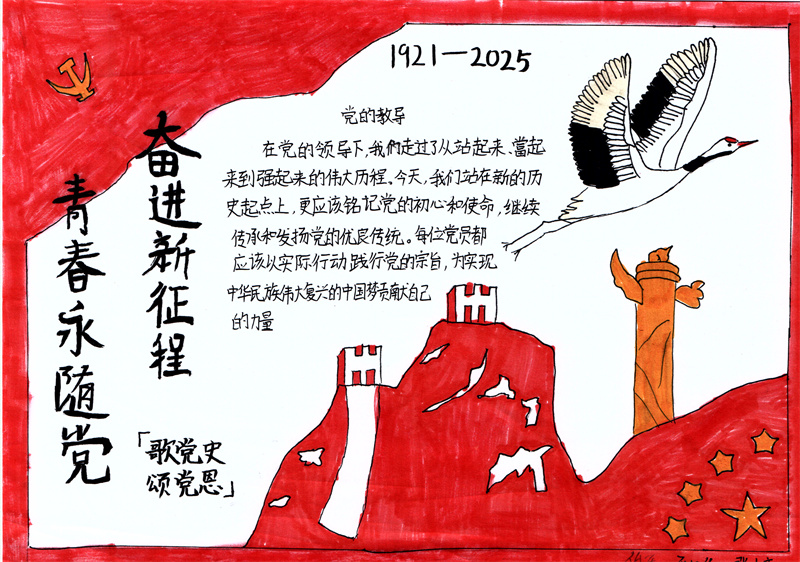 1921—2025
奋进新征程
青春永随党
「歌党史
颂党恩」
党的教导
在党的领导下,我们走过了从站起来、富起
来到强起来的伟大历程。今天,我们站在新的历
史起点上,更应该铭记党的初心和使命,继续
传承和发扬党的优良传统。每位党员都
应该以实际行动践行党的宗旨,为实现
中华民族伟大复兴的中国梦贡献自己
的力量